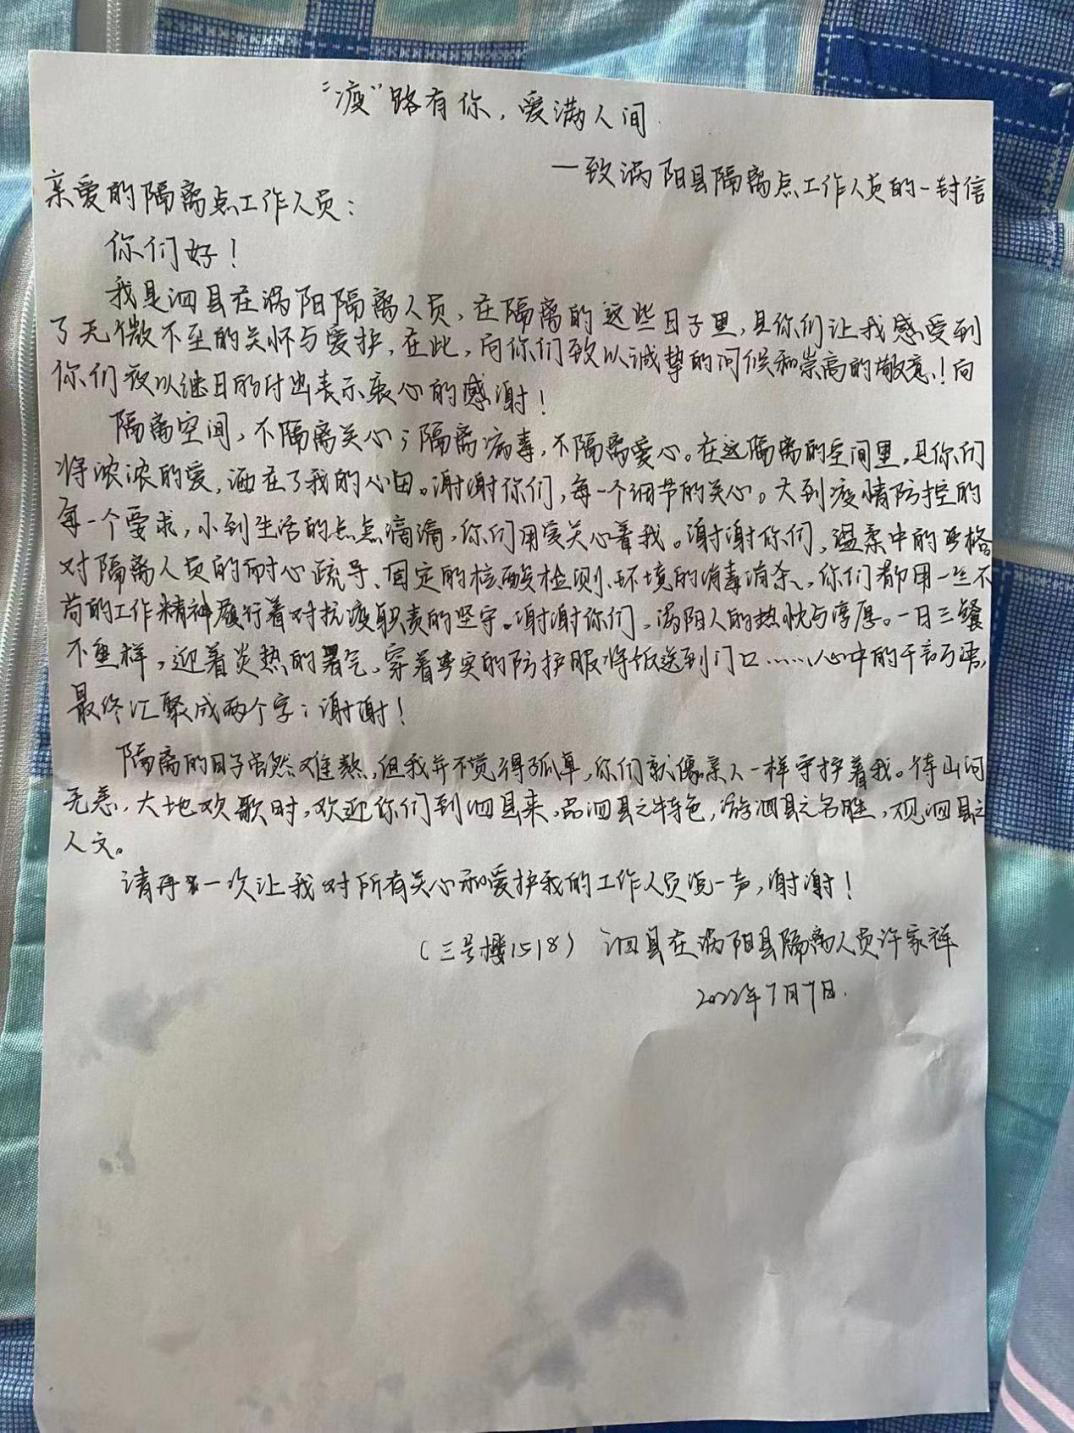 “疫”路有你，爱满人间
—致涡阳县隔离点工作人员的一封信
亲爱的隔离点工作人员：
你们好！
我是泗县在涡阳隔离人员，在隔离的这些日子里，是你们让我感受到
了无微不至的关怀与爱护，在此，向你们致以诚挚的问候和崇高的敬意！向
你们夜以继日的付出表示衷心的感谢！
隔离空间，不隔离关心；隔离病毒，不隔离爱心。在这隔离的空间里，是你们
将浓浓的爱，洒在了我的心田。谢谢你们，每一个细节的关心。大到疫情防控的
每一个要求，小到生活的点点滴滴，你们用爱关心着我。谢谢你们，温柔中的严格
对隔离人员的耐心疏导、固定的核酸检测、环境的消毒消杀，你们都用一丝不
苟的工作精神履行着对抗疫职责的坚守。谢谢你们，涡阳人的热忱与淳厚。一日三餐
不重样，迎着炎热的暑气，穿着严实的防护服将饭送到门口……心中的千言万语，
最终汇聚成两个字：谢谢！
隔离的日子虽然难熬，但我并不觉得孤单，你们就像亲人一样守护着我。待山河
无恙，大地欢歌时，欢迎你们到泗县来，品泗县之特色，游泗县之名胜，观泗县之
人文。
请再一次让我对所有关心和爱护我的工作人员说一声，谢谢！
（三号楼1518） 泗县在涡阳县隔离人员许家祥
2022年7月7日.